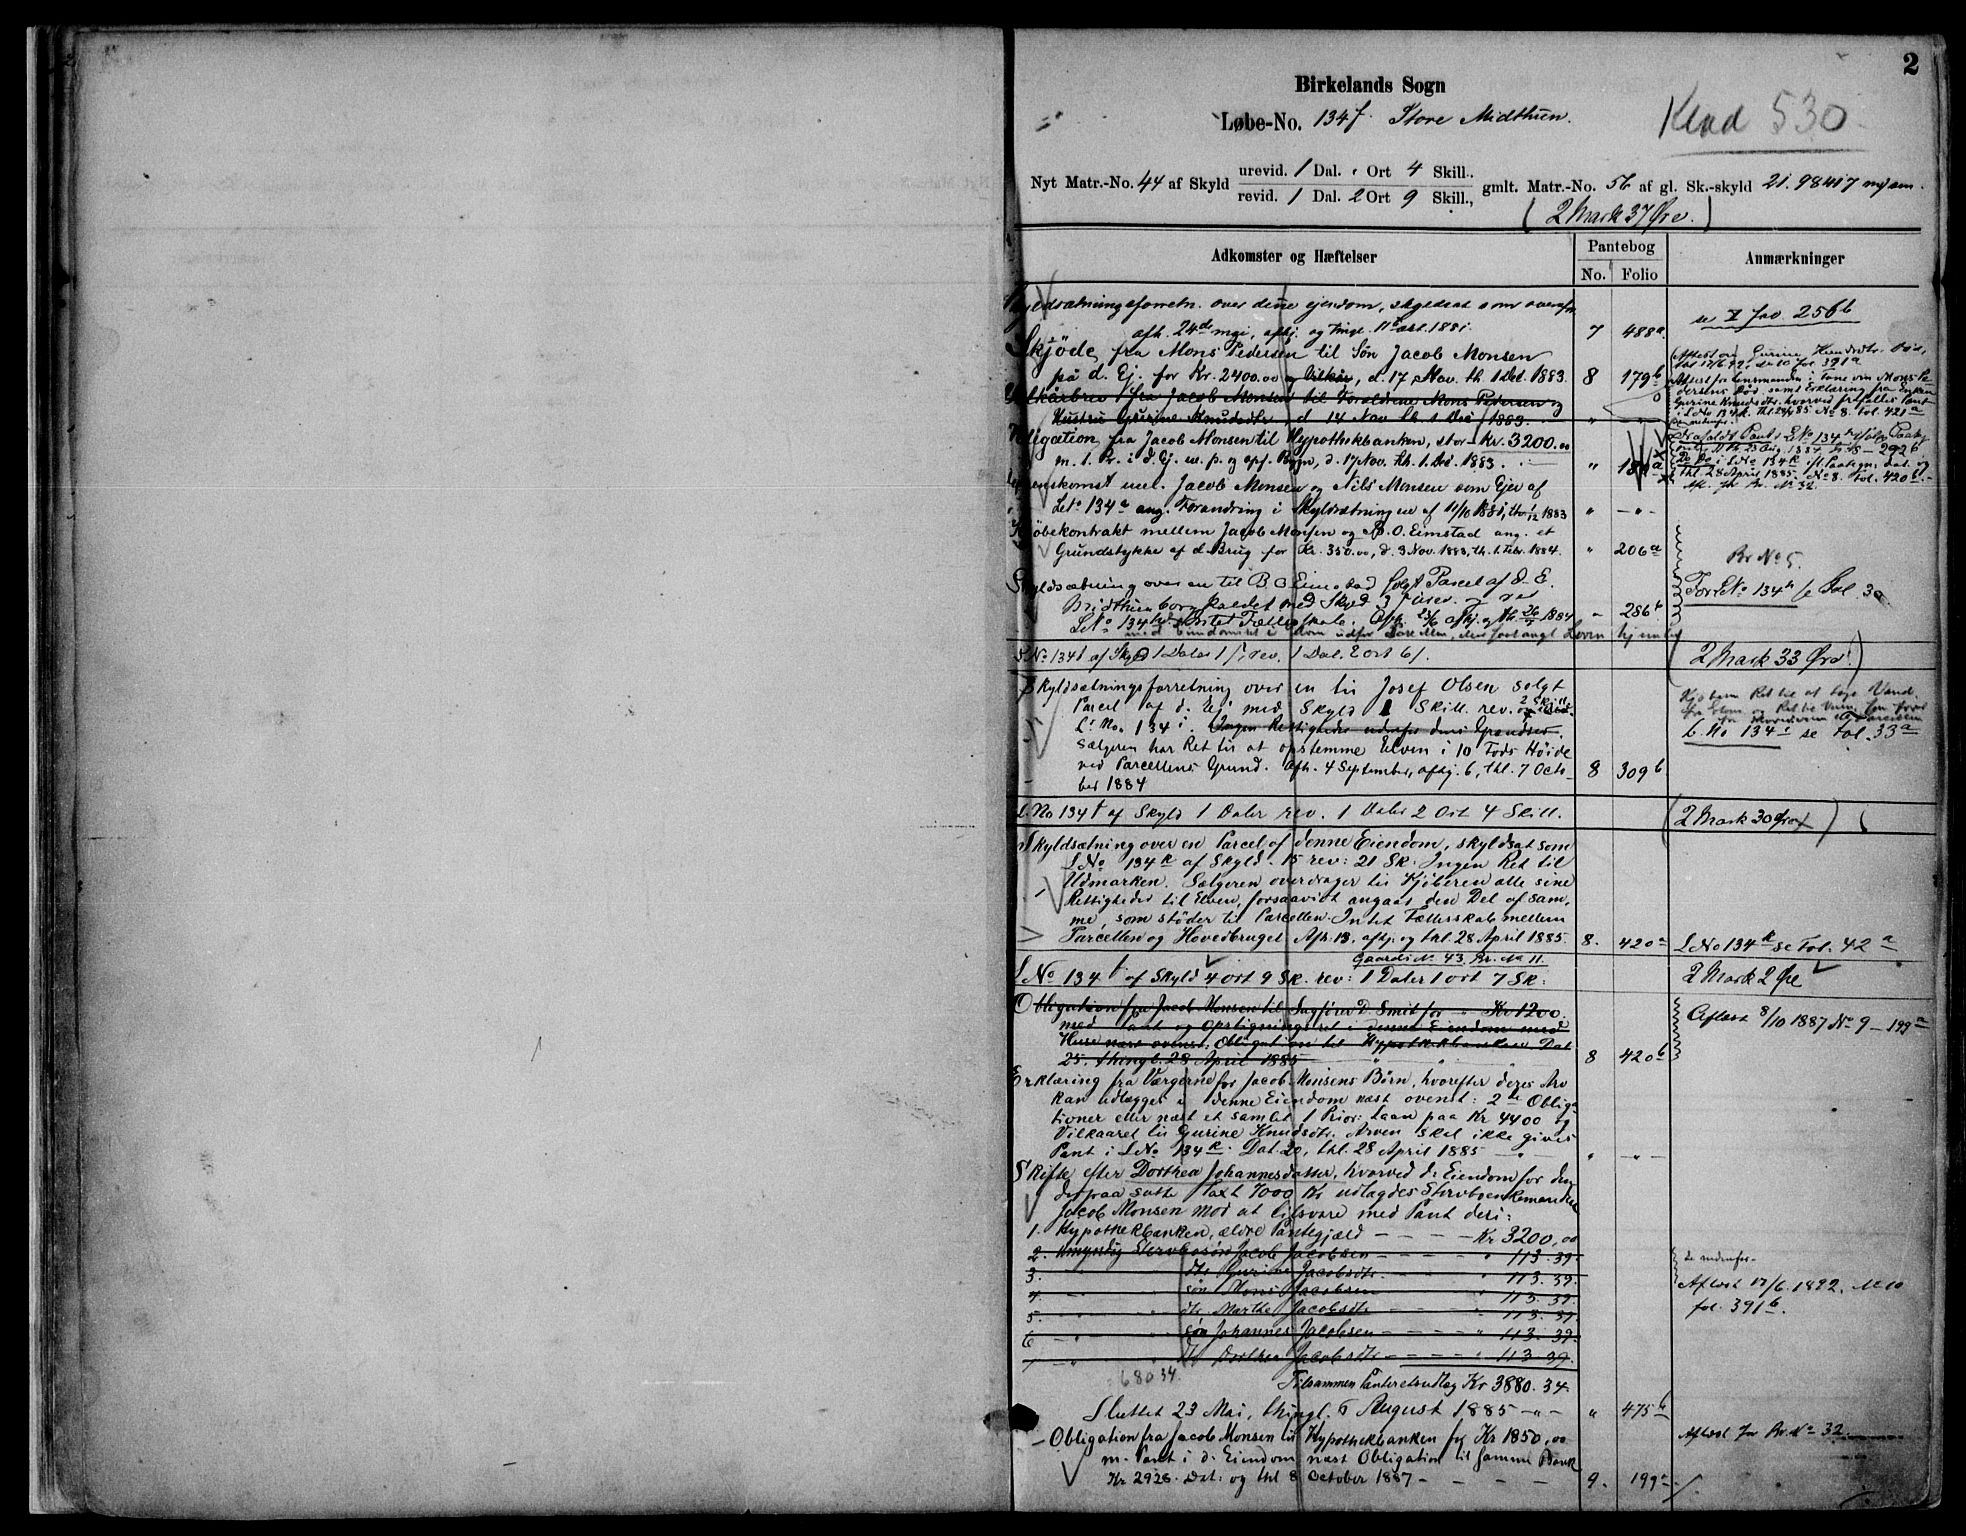 2
Birkelands Sogn
Løbe-No. 134f Store Midthun.
Klad 530
Nyt Matr.-No. 44 af Skyld urevid. 1 Dal. " Ort 4 Skill.
revid. 1 Dal. 2 Ort 9 Skill., gmlt. Matr.-No. 56 af gl. Sk.-skyld 21.98417
(2 Mark 37 Øre.)
Adkomster og Hæftelser
Pantebog
No. Folio
Anmærkninger
Skyldsætningsforretn. over denne ejendom, skyldsat som ovenfor
afh. 24de mai, afhj. og tingl. 11te 1881. 7 488a
se I fol. 256b
Skjöde fra Mons Pedersen til Søn Jacob Monsen
på d. Ej. for Kr. 2400.00 og Vilkår, d. 17 Nov. th. 1 Dec. 1883. 8 179b
Vilkårbrev fra Jacob Monsen til Forældrene Mons Pedersen og
Hustru Gurine Knudsdtr., d. 14 Nov. th. 1 Dec. 1883. " — " —
Obligation fra Jacob Monsen til Hypothekbanken, stor Kr. 3200.00
m. 1. Pr. i d. Ej. m. p. og opf. Bygn., d. 17 Nov. th. 1. Dec. 1883. "
Overenskomst mel. Jacob Monsen og Nils Monsen som Ejer af
LNo 134a ang. Forandring i Skyldsætningen af 11/10 1881, th. 1/12 1883 " — " —
Kjöbekontrakt mellem Jacob Monsen og B. O. Eimstad ang. et
Grundstykke af d. Brug for Kr. 350.00, d. 3 Nov. 1883, th. 1. Febr. 1884. " 206a
Br No 5.
Skyldsætning over en til B O Eimstad solgt Parcel af d. E.
Midthunborg kaldet med Skyld 3
LNo 134h Intet Fællesskab. Afh. 23/6 afhj. og th. 26/7 1884 " 286b
For LNo 134h se Fol. 30
LNo 134f af Skyld 1 Daler 1 ß, rev. 1 Dal. 2 ort 6 ß.
(2 Mark 33 Øre)
Skyldsætningsforretning over en til Josef Olsen solgt
Parcel af d. Ej. med Skyld 1 Skill. rev. 2 Skill.
L. No. 134i. Ingen Rettigheder udenfor dens Grændser.
Sælgeren har Ret til at opstemme Elven i 10 Fods Höide
ved Parcellens Grund. Afh. 4 September, afhj. 6, thl. 7 Octo-
ber 1884 8 309b
L. No 134i se Fol. 33a
L. No 134f af Skyld 1 Daler rev. 1 Daler 2 Ort 4 Skill.
(2 Mark 30 Øre)
Skyldsætning over en Parcel af denne Eiendom, skyldsat som
LNo 134k af Skyld - 15 rev: 21 Sk: Ingen Ret til
Udmarken. Sælgeren overdrager til Kjöberen alle sine
Rettigheder til Elven, forsaavidt angaar den Del af sam-
me, som stöder til Parcellen. Intet Fællesskab mellem
Parcellen og Hovedbruget. Afh. 13, afhj. og thl. 28 April 1885. 8. 420a
LNo 134k se Fol. 42a
Gaards N. 43. Br. No 11.
LNo 134f af Skyld 4 ort 9 Sk. rev: 1 Daler 1 ort 7 Sk:
2 Mark 2 Øre
Obligation fra Jacob Monsen til Sagfører D. Smit for " Kr 1200.
med Pant og Opsigningsret i denne Eiendom med
Huse næst ovenst: Obligation til Hypothekbanken Dat
25. thingl. 28 April 1885 8 420b
Aflæst 8/10 1887 No 9 – 199a
Erklæring fra Værgerne for Jacob Monsens Börn, hvorefter deres Arv
kan udlægges i denne Eiendom næst ovenst: 2de Obliga
tioner eller næst et samlet 1 Prior: Laan paa Kr 4400 og
Vilkaaret til Gurine Knudsdtr. Arven skal ikke gives
Pant i LNo 134k. Dat. 20, thl. 28 April 1885 — " — " — " —
Skifte efter Dorthea Johannesdatter, hvorved d. Eiendom for den
derpaa satte Taxt 7000 Kr udlagdes Stervboenkemanden
Jacob Monsen mod at tilsvare med Pant deri:
1. Hypothekbanken, ældre Pantegjæld — — — — Kr 3200,00
2. Umyndig Stervbosøn Jacob Jacobsen " 113.39
3. — " — dtr. Gurine Jacobsdtr. " 113.39.
4. — " — søn Mons Jacobsen " 113.39.
5. — " — dtr. Marthe Jacobsdtr " 113.39.
6 — " — søn Johannes Jacobsen " 113.39.
7 — " — dtr Dorthea Jacobsdtr " 113.39.
Aflæst 17/6 1892. No 10
fol. 391b.
680 34.
Tilsammen Panteretsudlæg Kr 3880.34
Sluttet 23 Mai, thingl. 6 August 1885 — " — " 475b
Obligation fra Jacob Monsen til Hypothekbanken for Kr 1850,00
m. Pant i d. Eiendom næst Obligation til samme Bank
Kr 2928. Dat: og thl 8 October 1887 — 9. 199a
Aflæst Br. No 32.